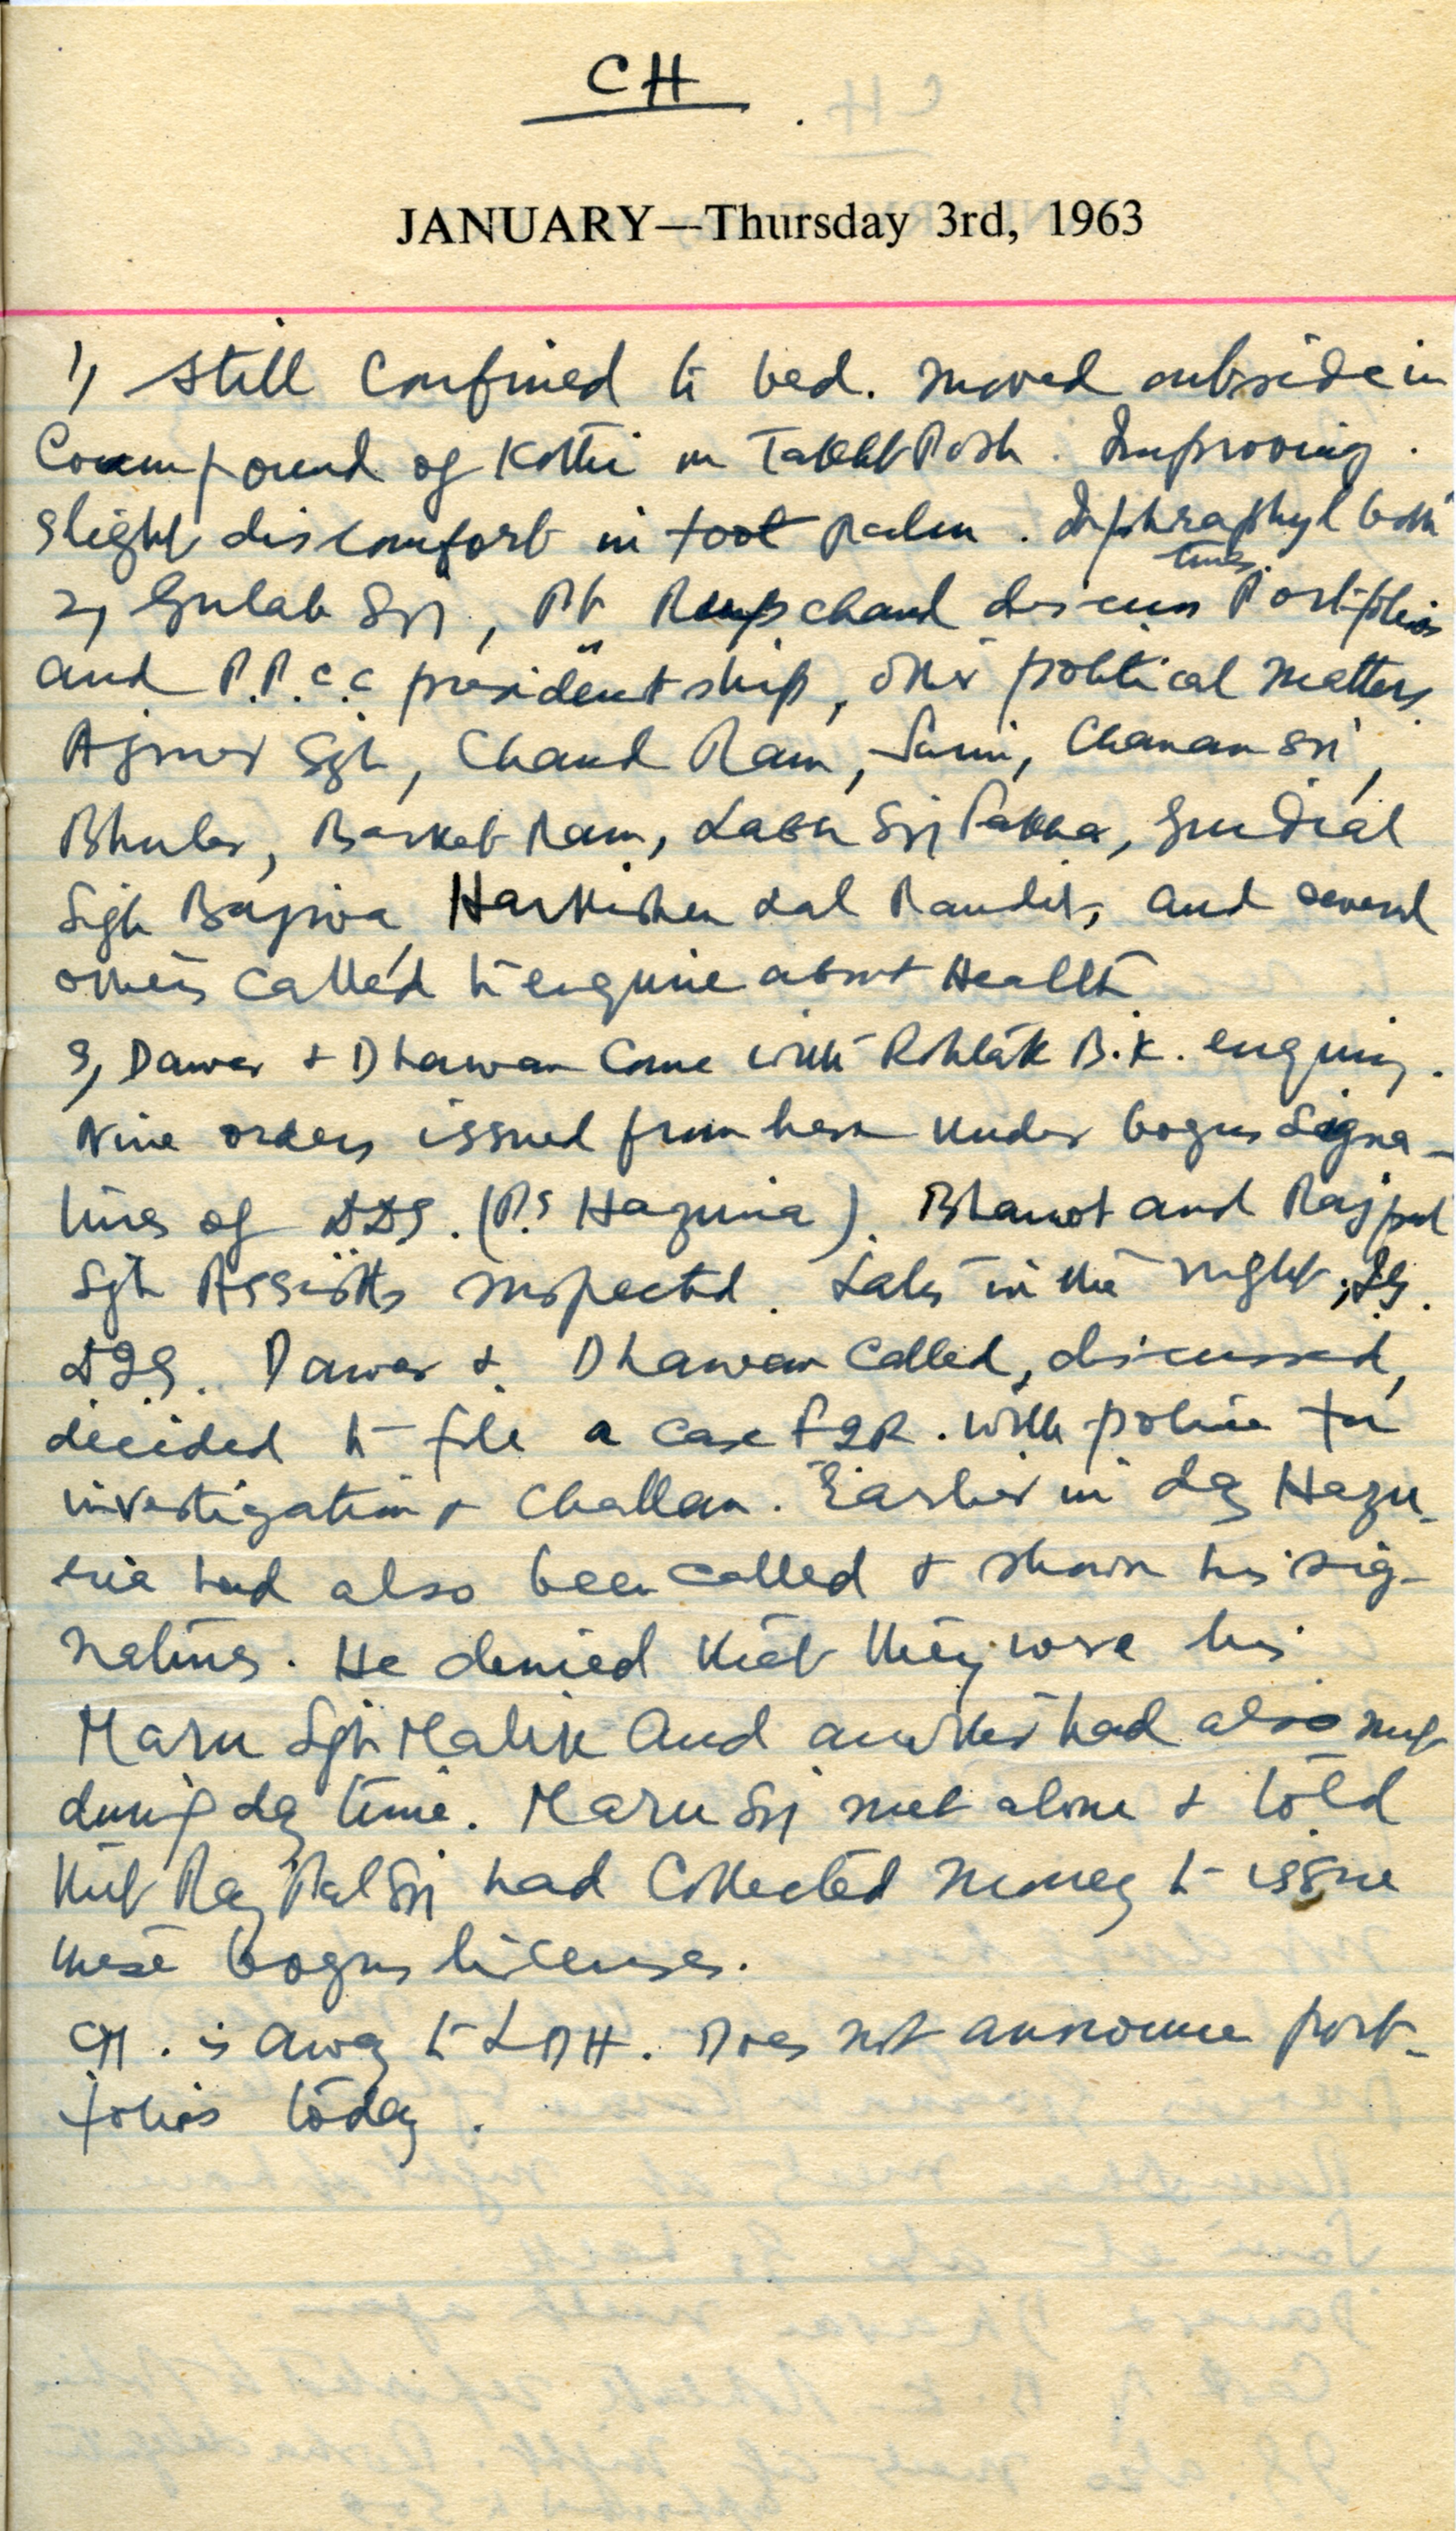 CH
JANUARY—Thursday 3rd, 1963
1) Still confined to bed. Moved outside in
Compound of Kothi on TakhtPosh. Improving.
slight discomfort in foot palm. both
times.
2) Gulab Sgh, Pt Rupchand discuss Portfolios
and P.P.C.C presidentship, other political matters
Ajmer Sgh, Chand Ram, Saini, Chanan Sgh,
Bhuler, Barkat Ram, Labh Sgh, Gurdial
Sigh Bajwa, Harkishen Lal Pandit, and several
others called to enquire about Health
3) Dawer & Dhawan Come with Rohtak B.K. enquiry.
Nine orders issued from here under bogus Signa-
tures of DDG. (P.S Hazuria). Bhanot and Rajpal
Sgh Assistts suspected. Late in the night, IG.
DIG. Dawer & Dhawan called, discussed,
decided to file a case FIR. with police for
investigation & Challan. Earlier in day Hazu-
ria had also been called & shown his sig-
natures. He denied that they were his
Maru Sgh Malik And another had also met
during day time. Maru Sgh met alone & told
that Raj Pal Sgh had Collected money to issue
these bogus licenses.
CM. is away to LDH. Does not announce port-
folios today.